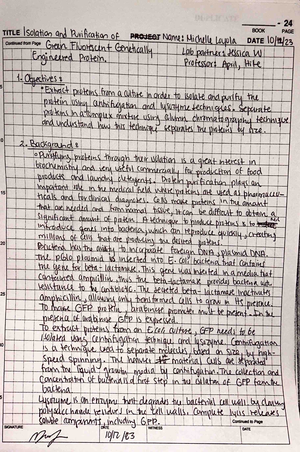 24
BOOK PAGE
TITLE Isolation and Purification of PROJECT Name: Michelle Loyola DATE 10/12/23
Continued from Page Green Fluorescent Genetically Lab partners Jessica W.
Engineered Protein. Professors April, Hite
1. Objectives:
• Extract proteins from a culture in order to isolate and purify the
protein using centrifugation and lysozyme techniques. Separate
proteins in a complex mixture using column chromatography technique
and understand how this technique separates the proteins by size.
2. Background:
• Purifying proteins through their is a great interest in
biochemistry and very useful commercially for production of food
products and laundry detergents. Protein purification plays an
important role in the medical field where proteins are used as pharmaceu-
ticals and for clinical diagnosis. Cells make proteins in the amount
that are needed and from normal tissue, it can be difficult to obtain a
significant amount of protein. A technique to produce proteins is to
introduce genes into bacteria, which can reproduce quickly, creating
millions of cells that are producing the desired protein.
Bacteria has the ability to incorporate foreign DNA, plasmid DNA.
The pGlo plasmid is inserted into E-coli bacteria that contains
the gene for beta-lactamase. This gene was inserted in a media that
contained ampicillin, thus the beta-lactamase provides bacteria with
resistance to the antibiotic. The secreted beta-lactamase inactivates
amphicillin, allowing only transformed cells to grow in its presence.
To make GFP protein, arabinose promoter must be present. In the
presence of GFP is expressed.
To extract proteins from an E.coli culture, GFP needs to be
isolated using centrifugation technique and lysozyme. Centrifugation
is a technique used to separate molecules, based on size, by high-
speed spinning. The matter cells are separated
from the liquid growth media by centrifugation. The collection and
concentration of bacteria is first step in the of GFP from the
bacteria.
Lysozyme is an enzyme that degrades the bacterial cell wall, by cleaving
polysaccharide residues in the cell walls. Complete lysis releases
soluble components, including GFP.
Continued to Page
SIGNATURE DATE WITNESS DATE
10/12/23